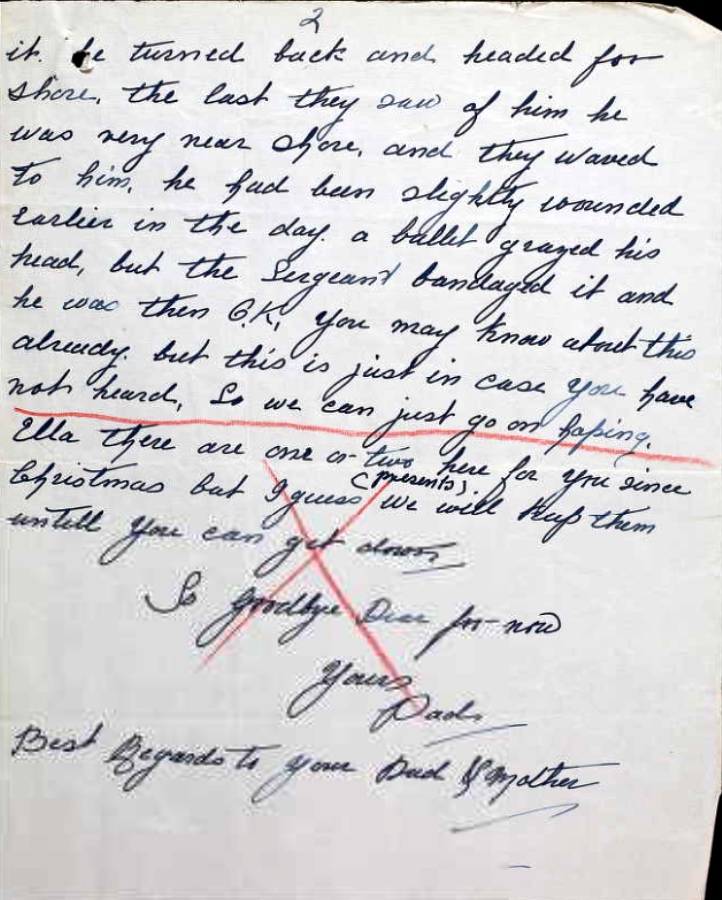 2
it. he turned back and headed for
shore, the last they saw of him he
was very near shore, and they waved
to him, he had been slightly wounded
Earlier in the day. a bullet grazed his
head, but the Sergeant bandaged it and
he was then O.K, you may know about this
already. but this is just in case you have
not heard, So we can just go on hoping.
Ella there are one or two here for you since
(presents)
Christmas but I guess we will keep them
untill you can get down
So goodbye Dear for now
Yours
Dad
Best Regards to your Dad & Mother